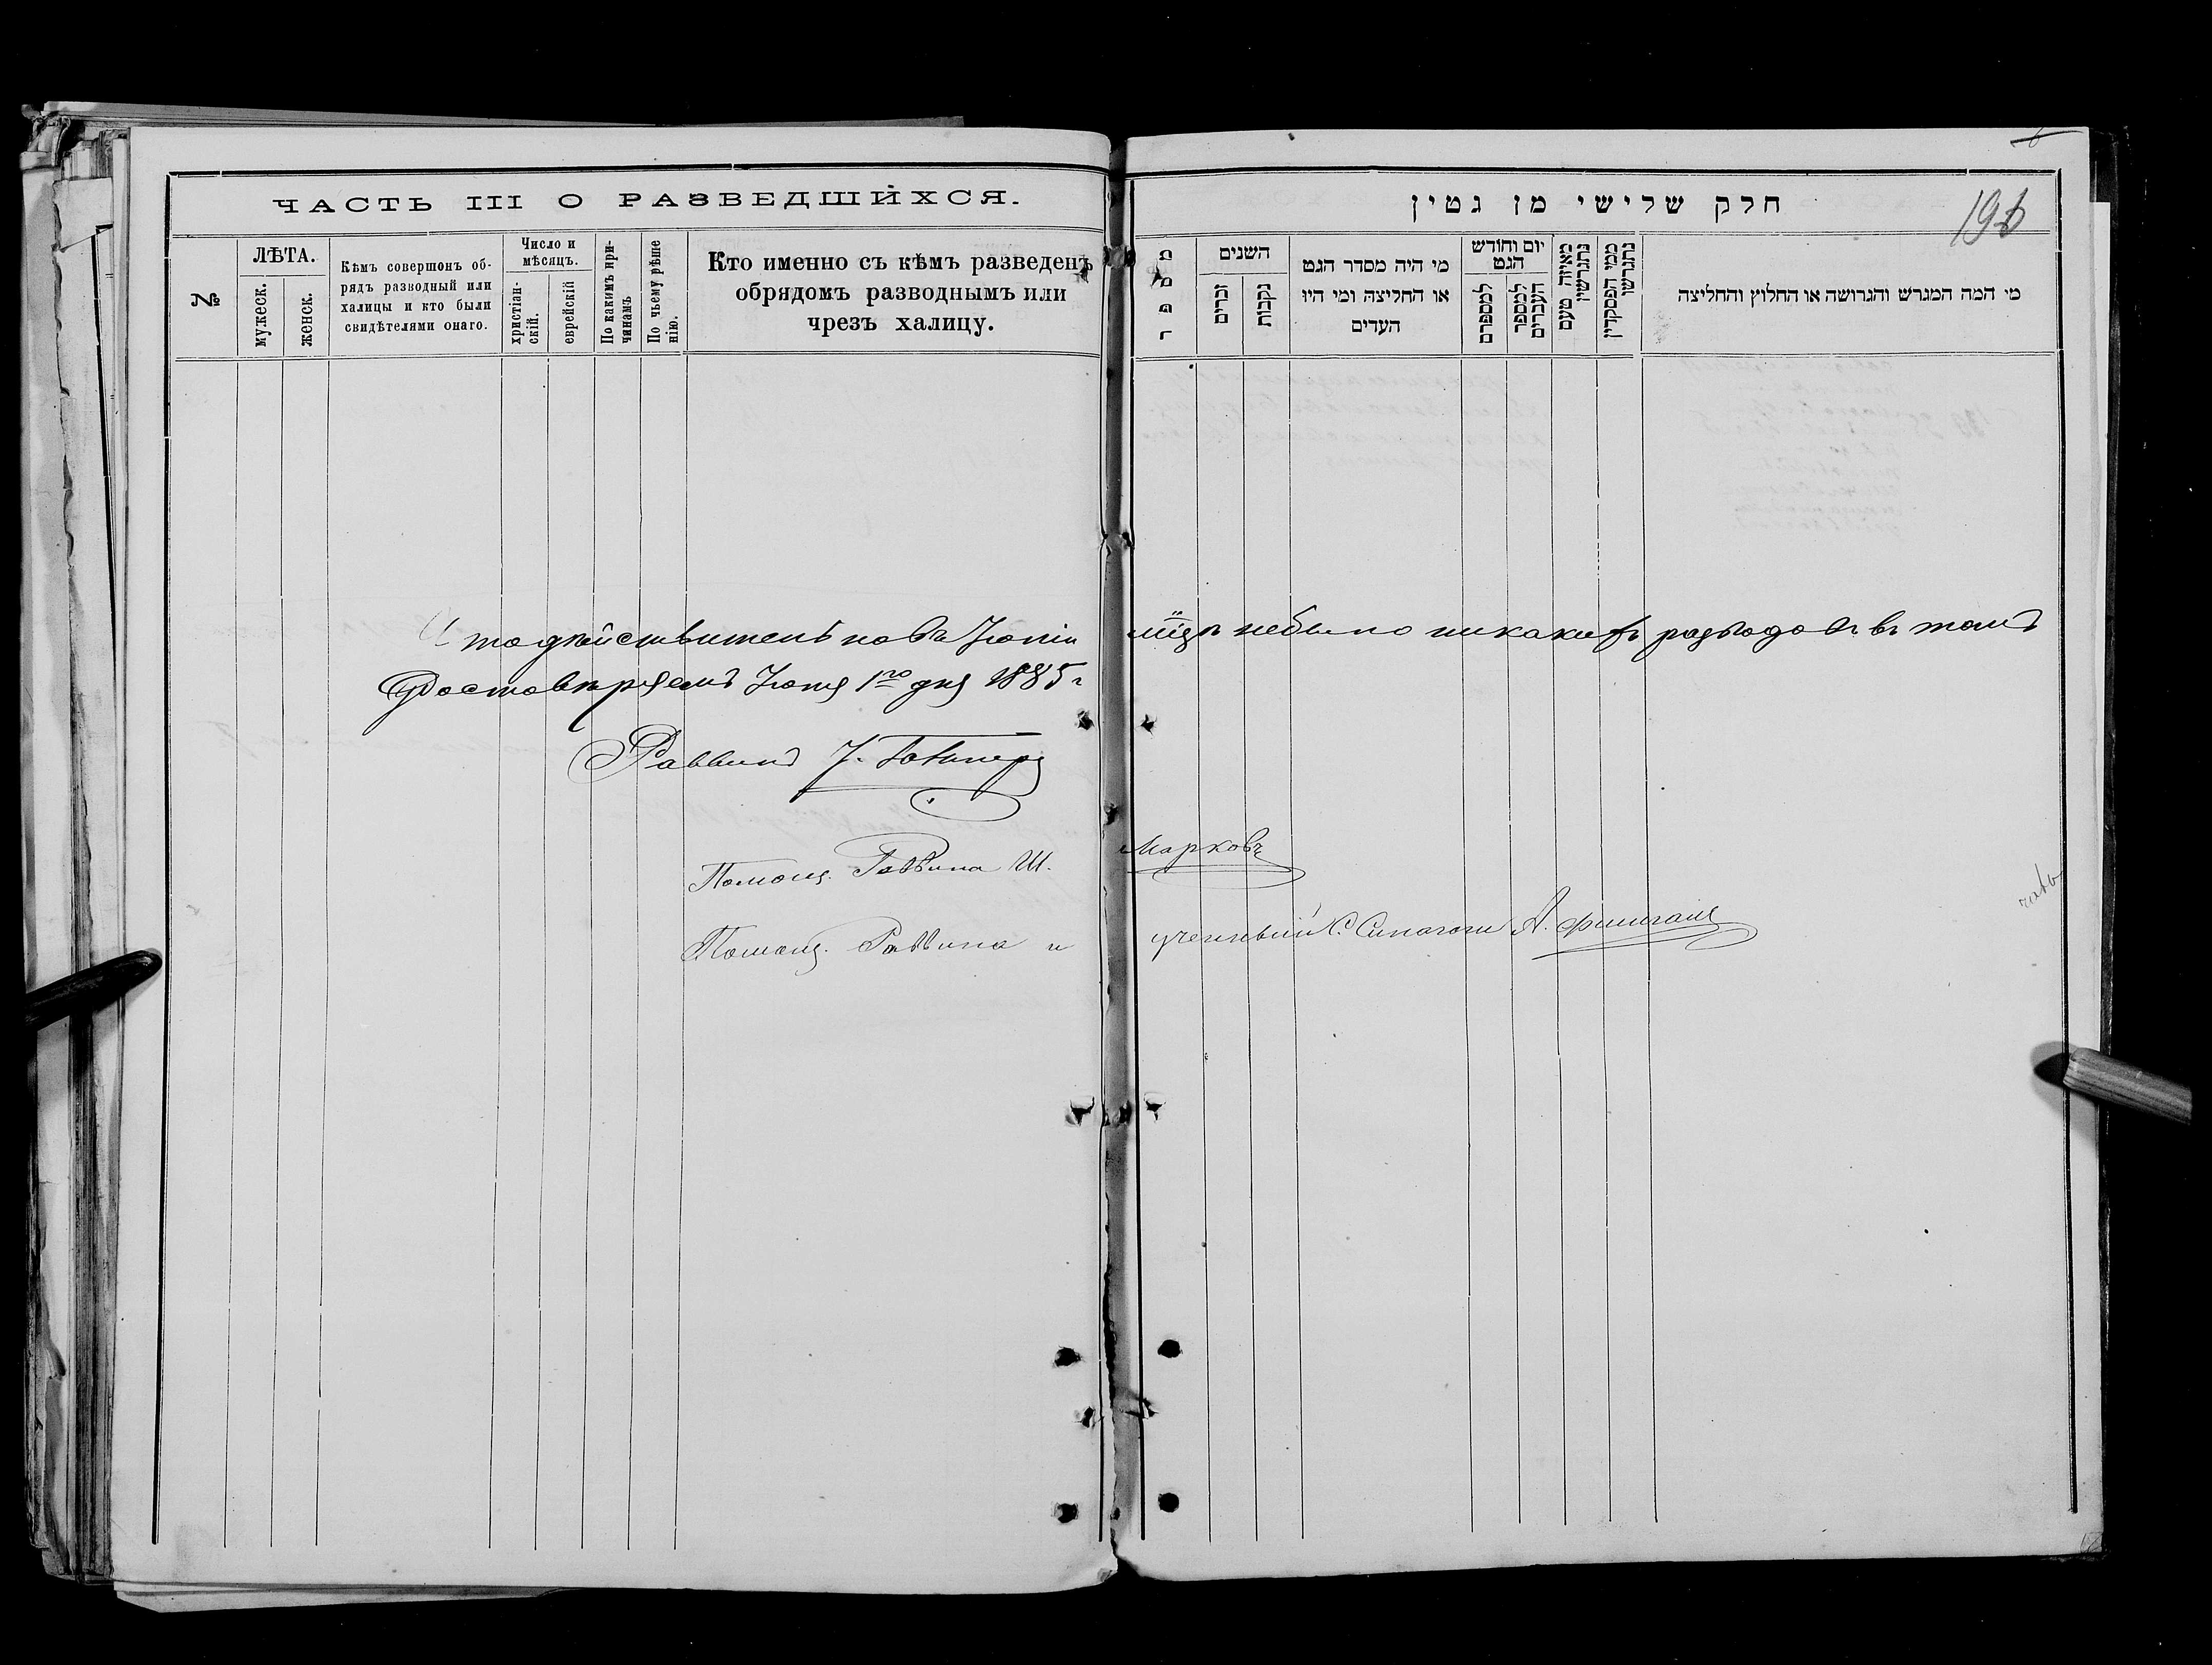 ЧАСТЬ III О РАЗВЕДШИХСЯ.
№
ЛѢТА.
мужеск.
женск.
Кѣмъ совершонъ об-
рядъ разводный или
халицы и кто были
свидѣтелями онаго.
Число и
мѣсяцъ.
христіан-
скій.
еврейскій
По какимъ при-
чинамъ
По чьему рѣше
нію.
Кто именно съ кѣмъ разведенъ
обрядомъ разводнымъ или
чрезъ халицу.
חלק שלישי מן גטין
196
מספר
השנים
זכרים
נקבות
מי היה מסדר הגט
או החליצה ומי היו
העדים
יום וחודש
הגט
למספרם
למספר
העברים
מאיזה טעם
נתגרשו
ממי הפסקדין
נתגרשו
מי המה המגרש והגרושה או החלוץ והחליצה
Что дѣйствительно въ Іюнѣ мѣцѣ небыло никакихъ разводовъ въ томъ
Удостовѣряемъ Іюля 1го дня 1885 г
Раввинъ
Помощ. Раввина Ш. Марковъ
Помощ. Раввина и ученный С. Синагоги А.